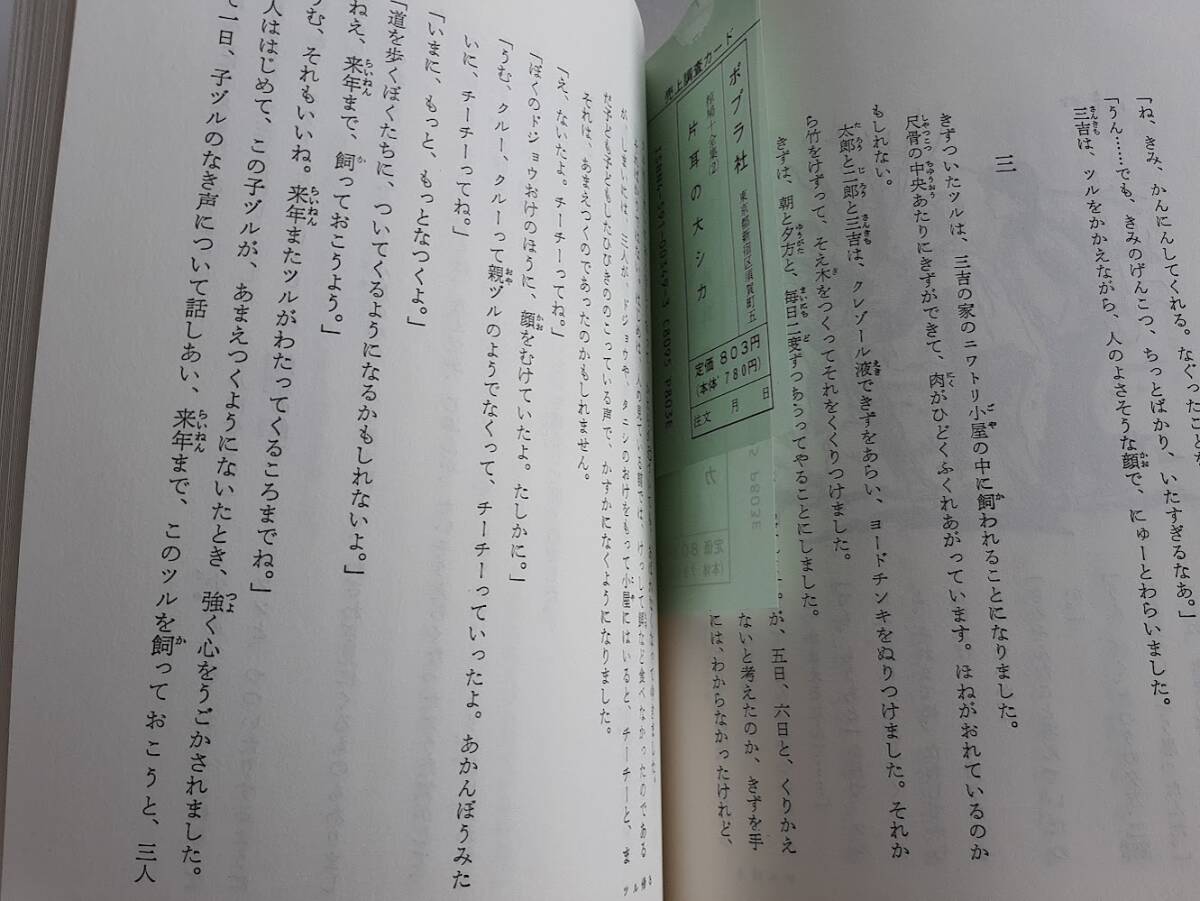 「ね、きみ、かんにんしてくれる。なぐったこと
「うん……でも、きみのげんこつ、ちっとばかり、いたすぎるなあ。」
三吉は、ツルをかかえながら、人のよさそうな顔で、にゅーとわらいました。
三
きずついたツルは、三吉の家のニワトリ小屋の中に飼われることになりました。
尺骨の中央あたりにきずができて、肉がひどくふくれあがっています。ほねがおれているのか
もしれない。
太郎と二郎と三吉は、クレゾール液できずをあらい、ヨードチンキをぬりつけました。それか
ら竹をけずって、そえ木をつくってそれをくくりつけました。
きずは、朝と夕方と、毎日二度ずつあらってやることにしました。
が、五日、六日と、くりかえ
ないと考えたのか、きずを手
には、わからなかったけれど、
売上調査カード
ポプラ社
東京都新宿区須賀町五
椋鳩十全集(2)
片耳の大シカ
定価803円
(本体780円)
注文 月 日
C8095 P803E
人の見ている前では、けっして餌など食べなかったのである
が、しまいには、三人が、ドジョウや、タニシのおけをもって小屋にはいると、チーチーと、ま
だ子ども子どもしたひびきののこっている声で、かすかになくようになりました。
それは、あまえつくのであったのかもしれません。
「え、ないたよ。チーチーってね。」
「ぼくのドジョウおけのほうに、顔をむけていたよ。たしかに。」
「うむ、クルー、クルーって親ヅルのようでなくって、チーチーっていったよ。あかんぼうみた
いに、チーチーってね。」
「いまに、もっと、もっとなつくよ。」
「道を歩くぼくたちに、ついてくるようになるかもしれないよ。」
ねえ、来年まで、飼っておこうよう。」
うむ、それもいいね。来年またツルがわたってくるころまでね。」
人ははじめて、この子ヅルが、あまえつくようにないたとき、強く心をうごかされました。
て一日、子ヅルのなき声について話しあい、来年まで、このツルを飼っておこうと、三人
ツル帰る